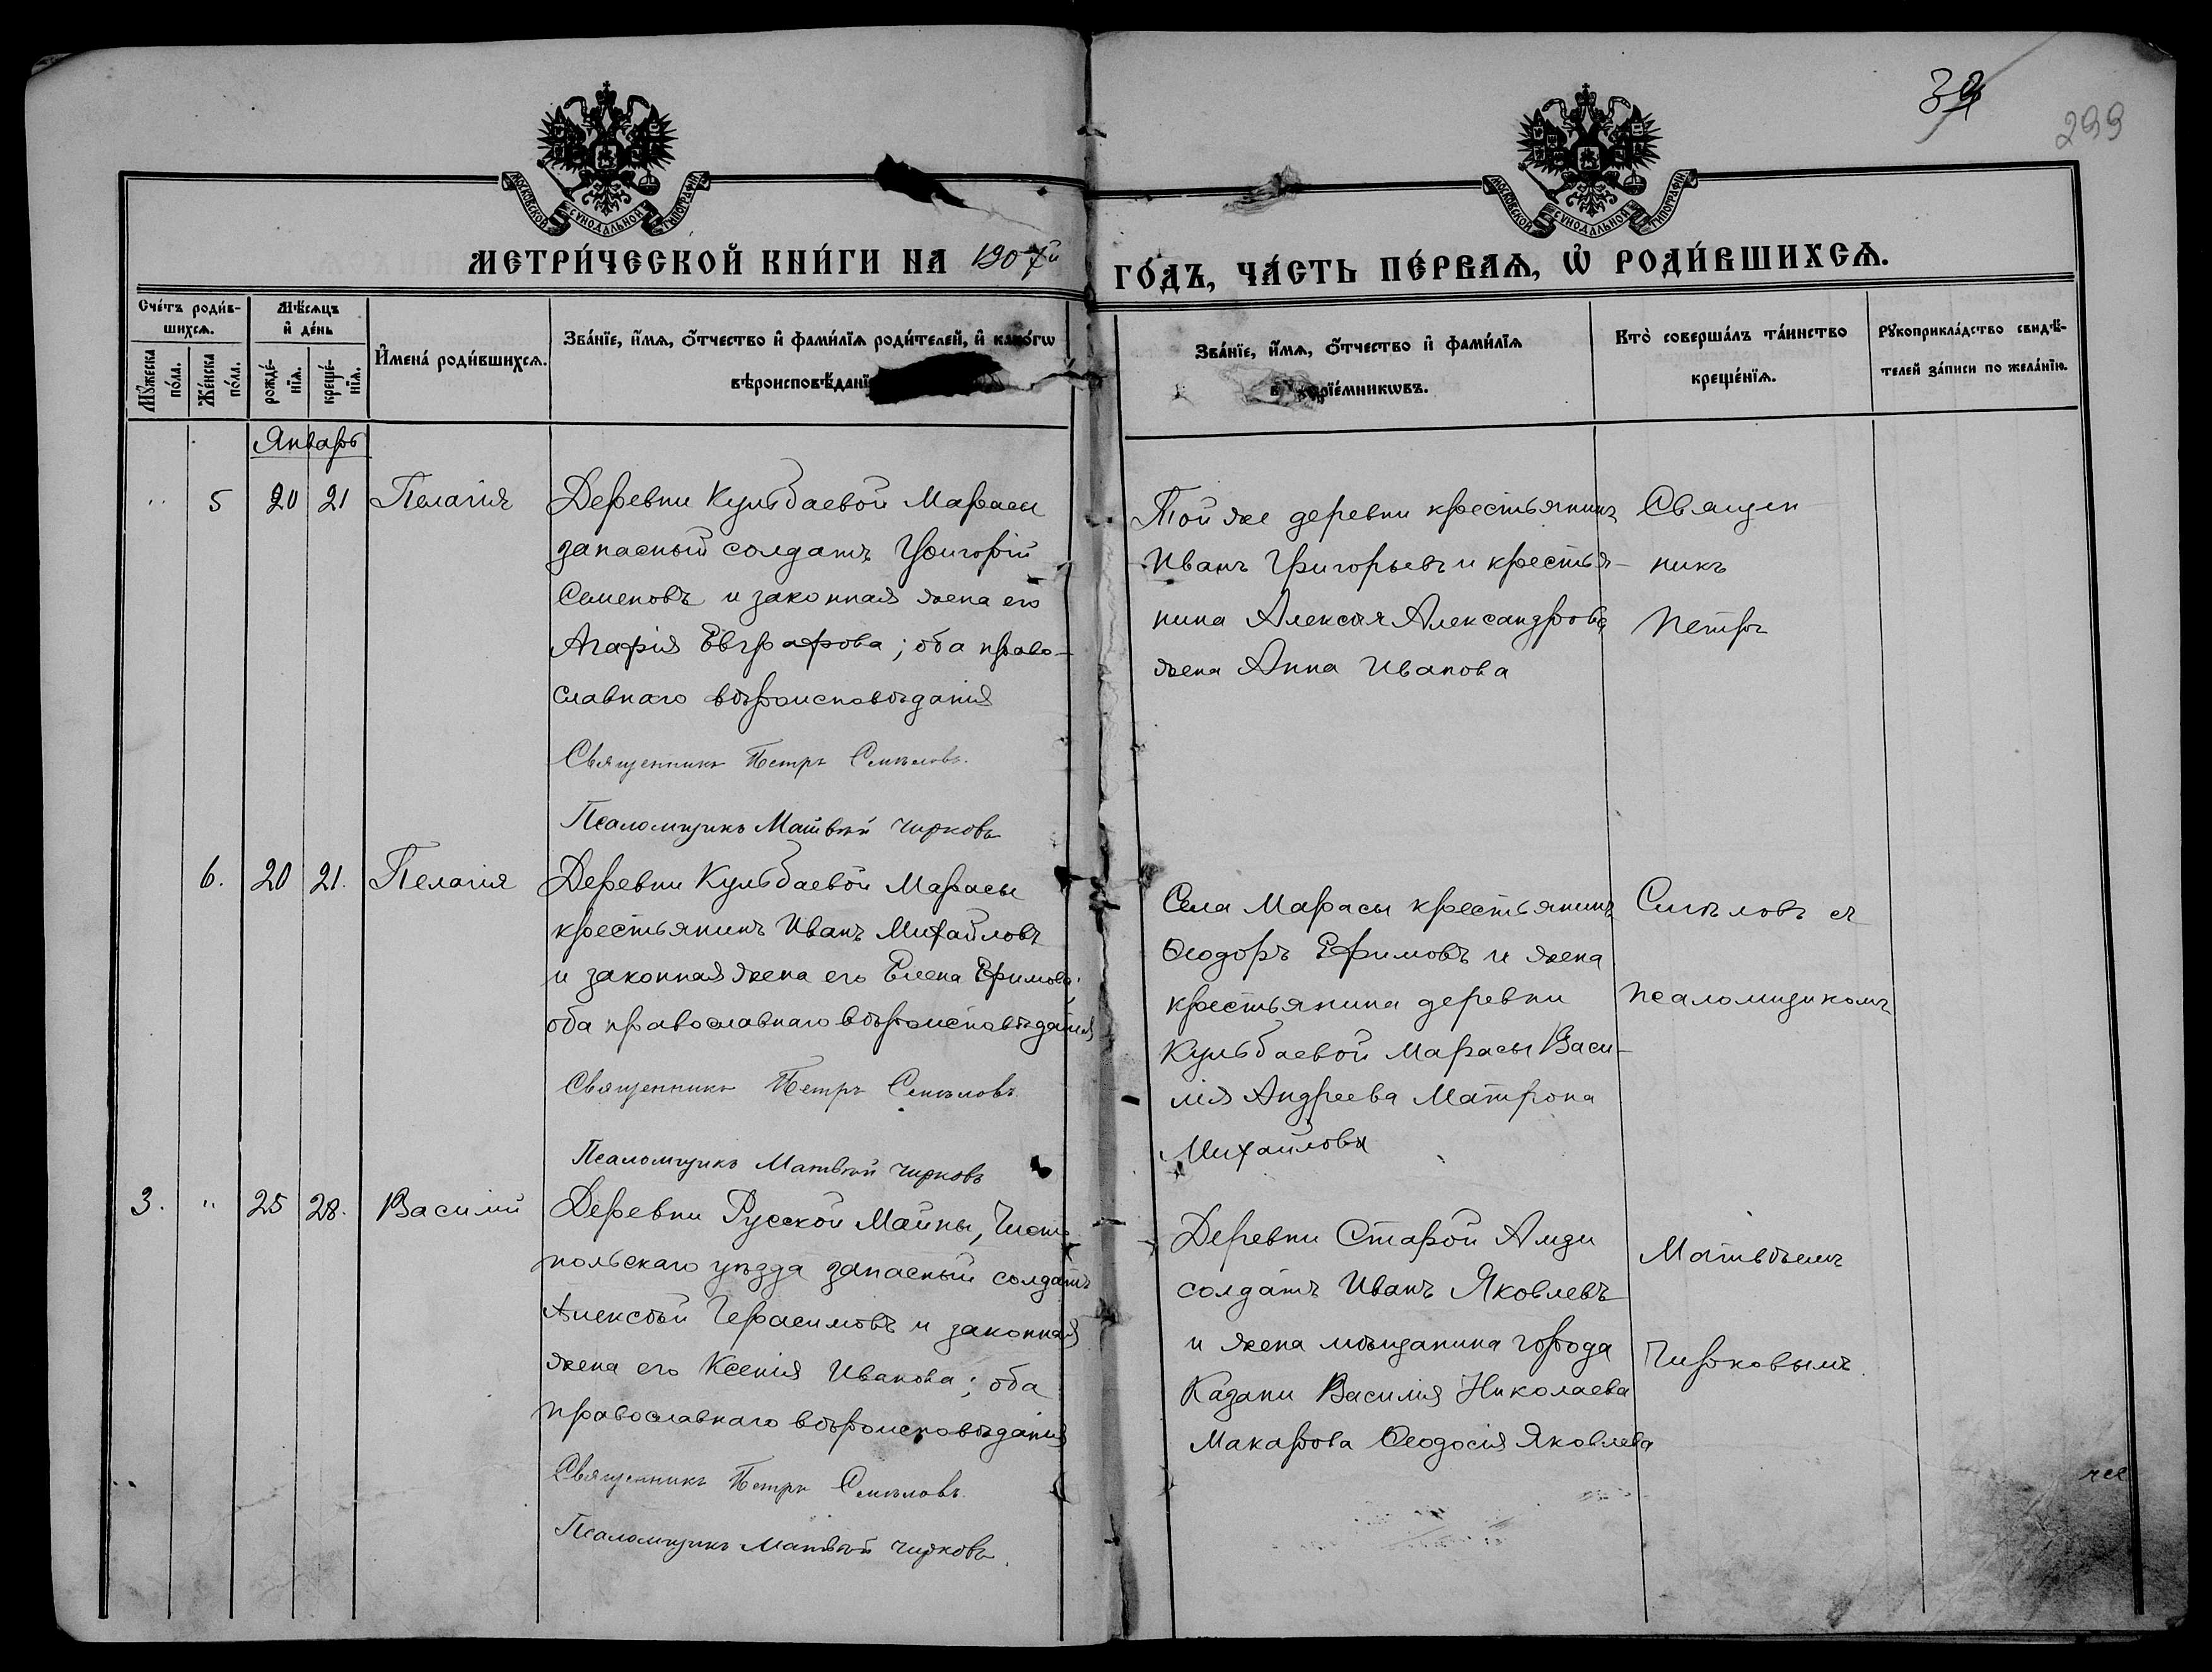 39
299
МОСКОВСКОЙ СѴНОДАЛЬНОЙ ТИПОГРАФІИ
МОСКОВСКОЙ СѴНОДАЛЬНОЙ ТИПОГРАФІИ
МЕТРИ́ЧЕСКОЙ КНИ́ГИ НА 1907й ГО́ДЪ, ЧА́СТЬ ПЕ́РВАѦ, Ѡ҆ РОДИ́ВШИХСѦ.
Сче́тъ роди́в-
шихсѧ.
Мꙋ́жеска по́ла.
Же́нска по́ла.
Мѣ́сѧцъ
и҆ де́нь
рожде́-
нїѧ.
креще́-
нїѧ.
И҆мена̀ роди́вшихсѧ.
Зва́нїе, и҆́мѧ, ѻ҆́тчество и҆ фами́лїѧ роди́телей, и҆ како́гѡ
вѣроисповѣ́данї
Зва́нїе, и҆́мѧ, ѻ҆́тчество и҆ фами́лїѧ
прїе́мникѡвъ.
Кто̀ соверша́лъ та́инство
креще́нїѧ.
Рꙋкоприкла́дство свидѣ́-
телей за́писи по жела́нїю.
Январь
" 5 20 21 Пелагія
Деревни Кульбаевой Марасы
запасный солдатъ Григорій
Семеновъ и законная жена его
Агафія Евграфова; оба право-
славнаго вѣроисповѣданія
Священникъ Петръ Смѣловъ.
Псаломщикъ Матвѣй Чирковъ
Той же деревни крестьянинъ
Иванъ Григорьевъ и крестья-
нина Алексѣя Александрова
жена Анна Иванова
Священ
никъ
Петръ
6. 20 21. Пелагія
Деревни Кульбаевой Марасы
крестьянинъ Иванъ Михайловъ
и законная жена его Елена Ефимова;
оба православнаго вѣроисповѣданія
Священникъ Петръ Смѣловъ
Псаломщикъ Матвѣй Чирковъ
Села Марасы крестьянинъ
Ѳеодоръ Ефимовъ и жена
крестьянина деревни
Кульбаевой Марасы Васи-
лія Андреева Матрона
Михайлова
Смѣловъ съ
псаломщикомъ
3. " 25 28. Василій
Деревни Русской Майны, Чисто
польскаго уѣзда запасный солдатъ
Алексѣй Герасимовъ и законная
жена его Ксенія Иванова; оба
православнаго вѣроисповѣданія
Священникъ Петръ Смѣловъ.
Псаломщикъ Матвѣй Чирковъ.
Деревни Старой Амзи
солдатъ Иванъ Яковлевъ
и жена мѣщанина города
Казани Василія Николаева
Макарова Ѳеодосія Яковлева
Матвѣемъ
Чирковымъ.